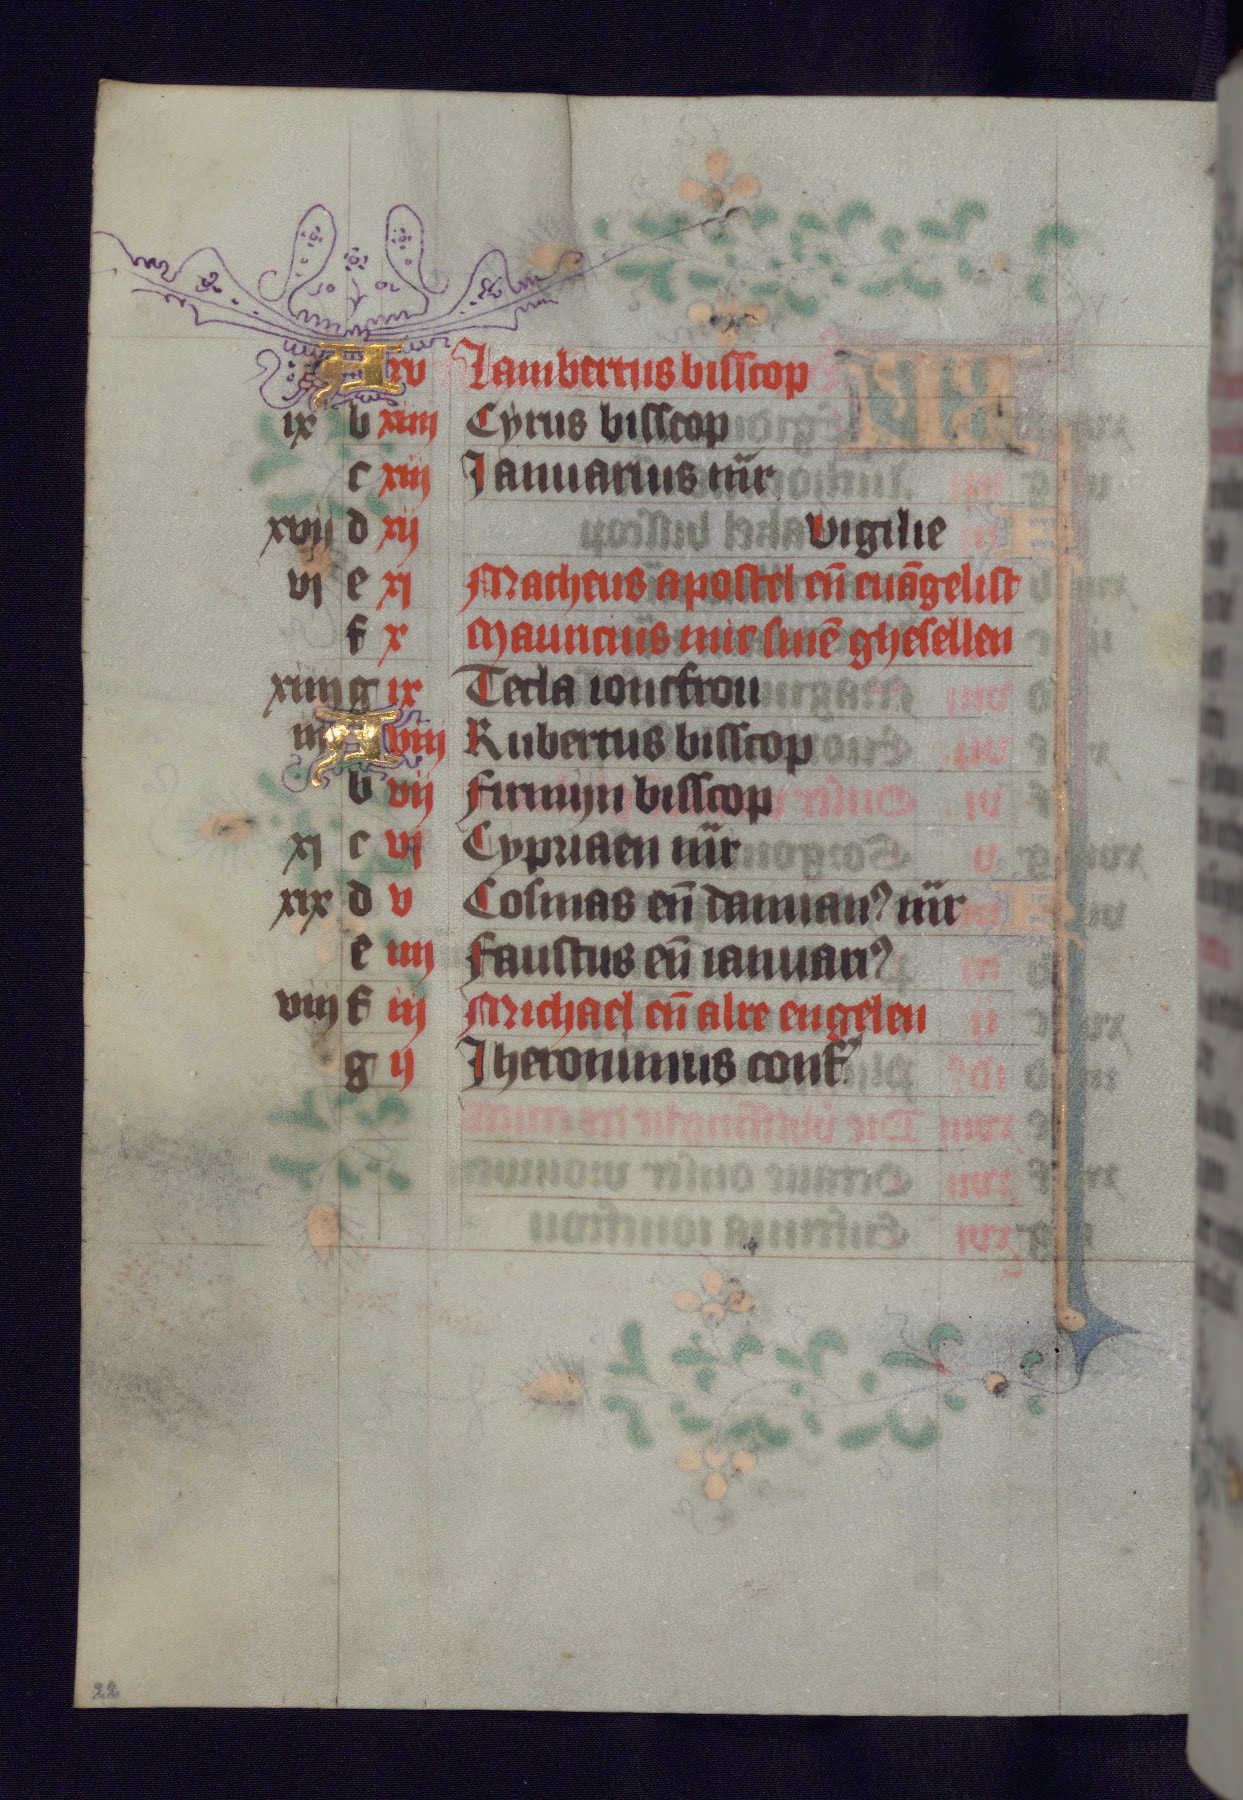 A xv Lambertus bisscop
ix b xiiii Cyrus bisscop
c xiii Ianuarius mr̄
xvii d xii Vigilie
vi e xi Matheus apostel en̄ euāgelist
f x Mauricius mit sinē ghesellen
xiiii g ix Tecla ioncfrou
iii A viii Rubertus bisscop
b vii Firmijn bisscop
xi c vi Cypriaen mr̄
xix d v Cosmas en̄ damianꝰ mr̄
e iiii Faustus en̄ ianuariꝰ
viii f iii Michael en̄ alre engelen
g ii Iheronimus conf.
22